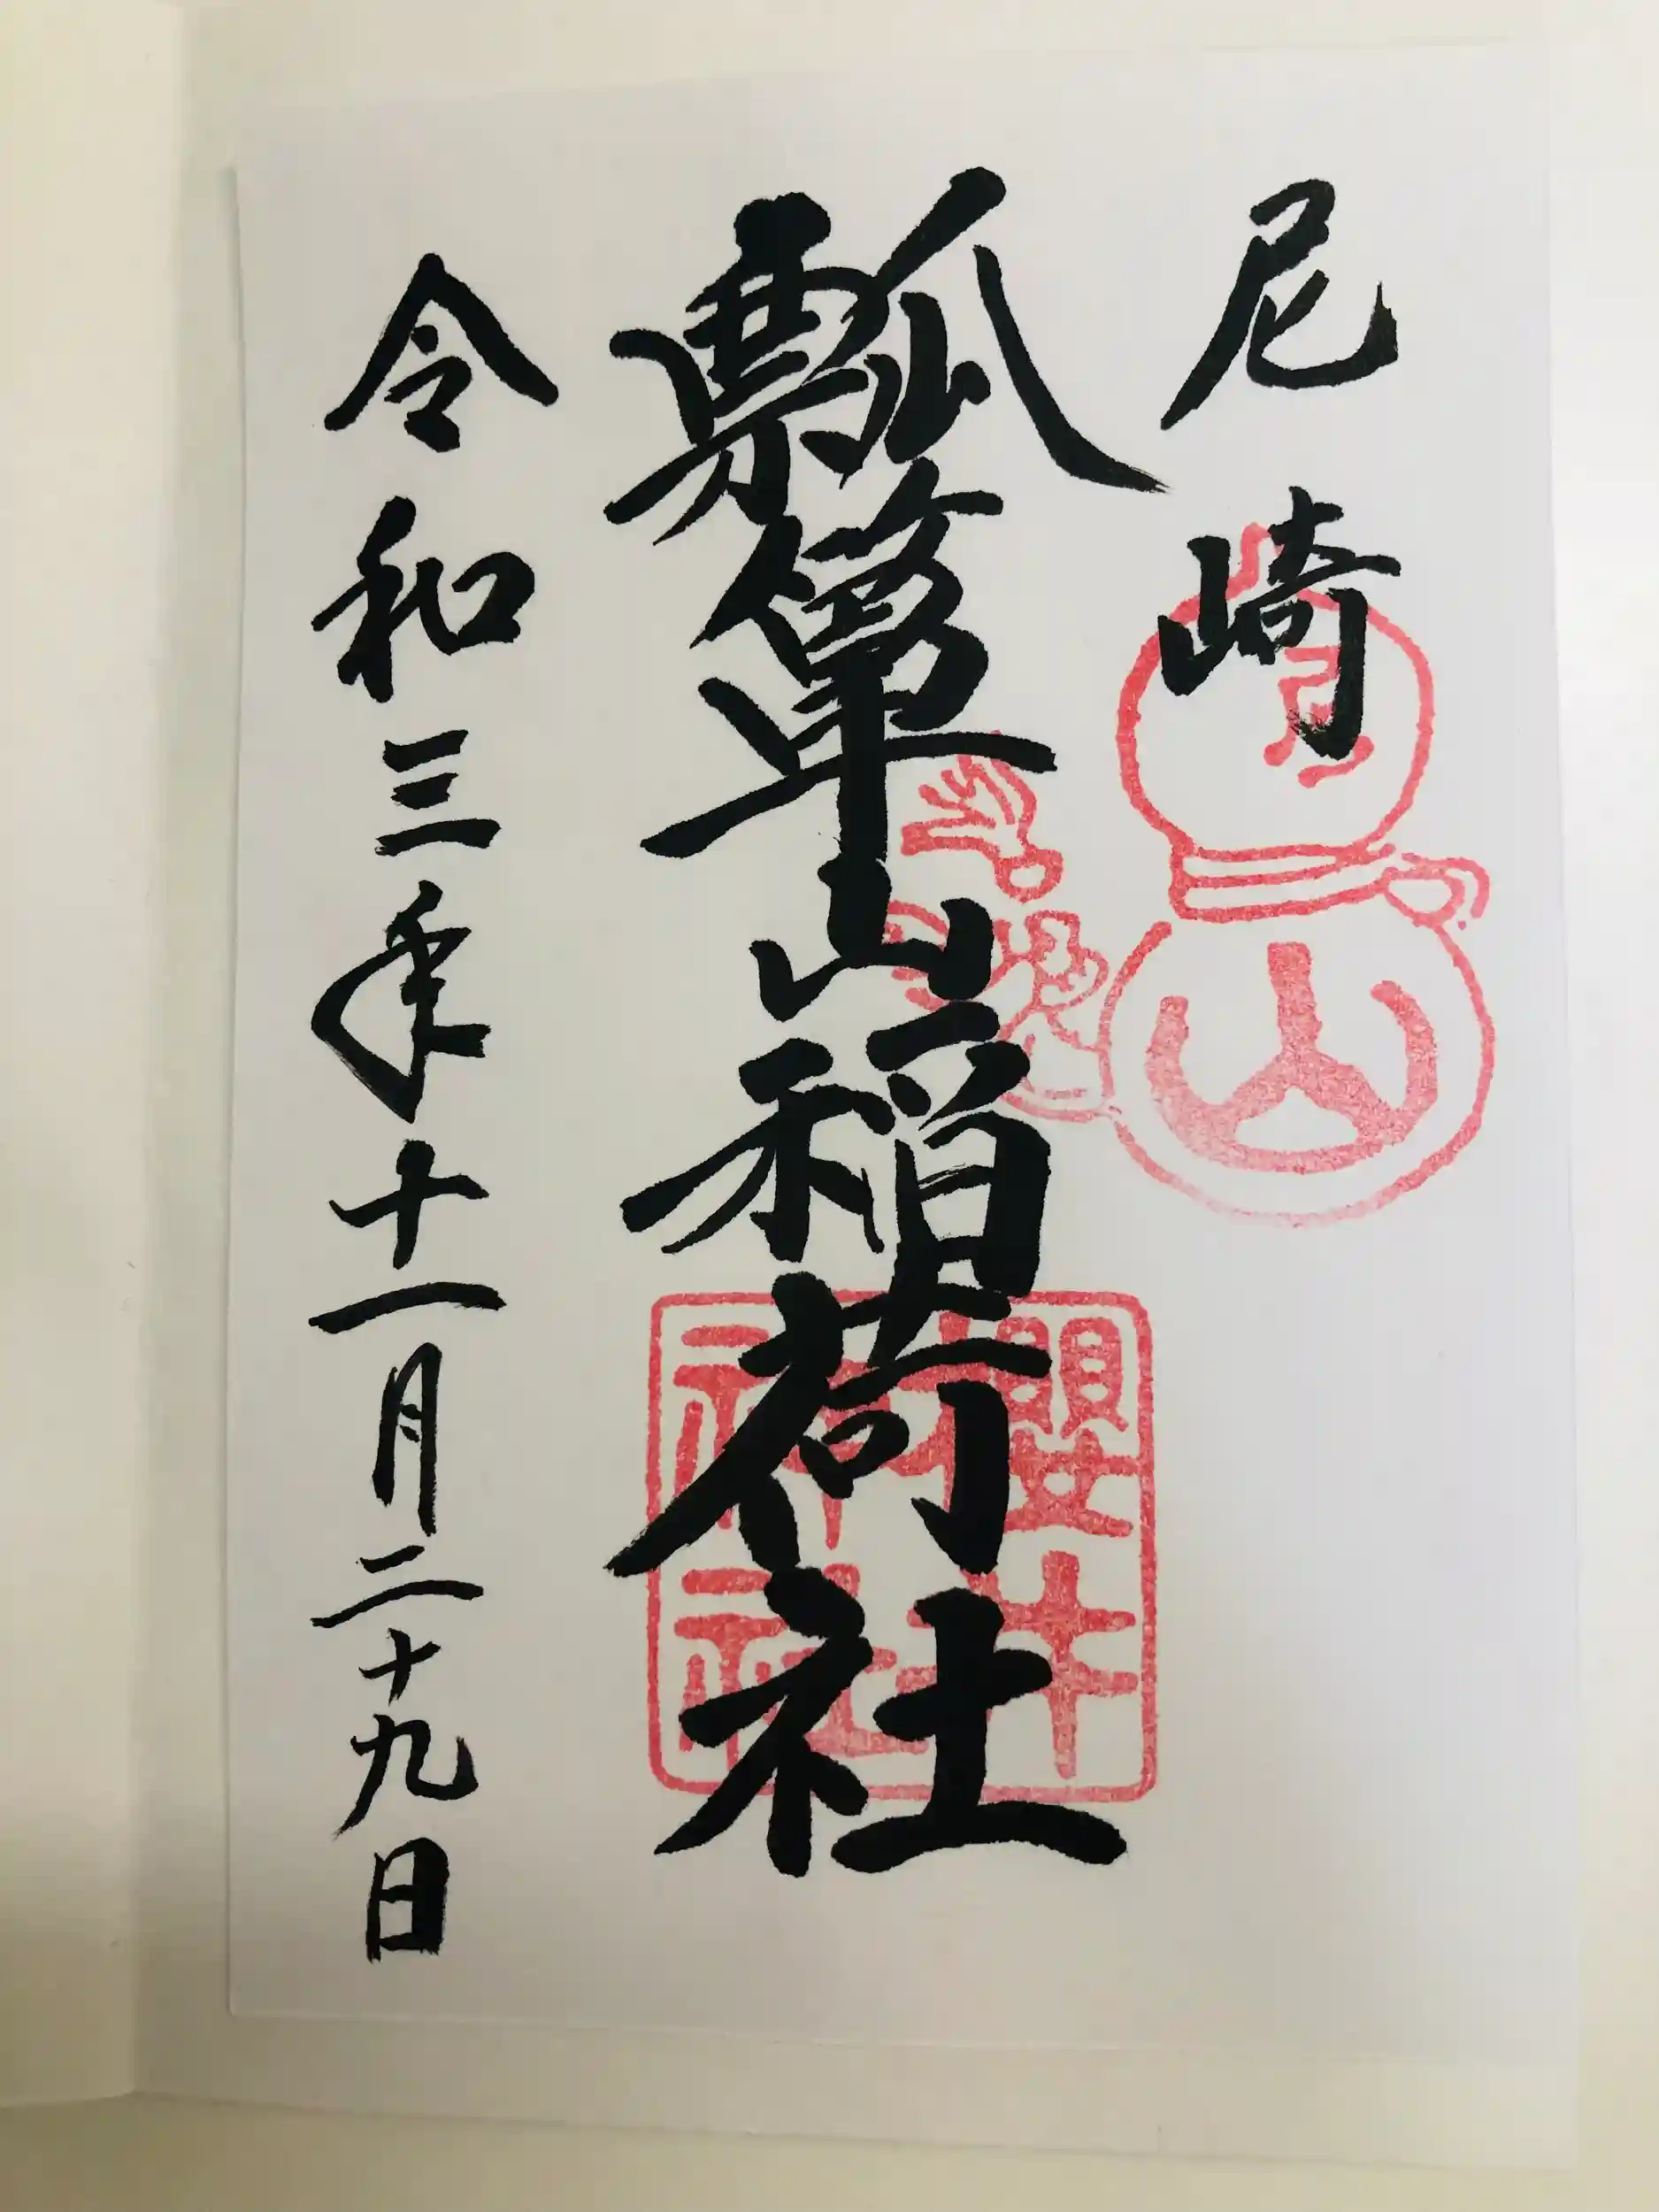 尼崎
瓢簞山稲荷社
令和三年十一月二十九日
山
櫻井
神社